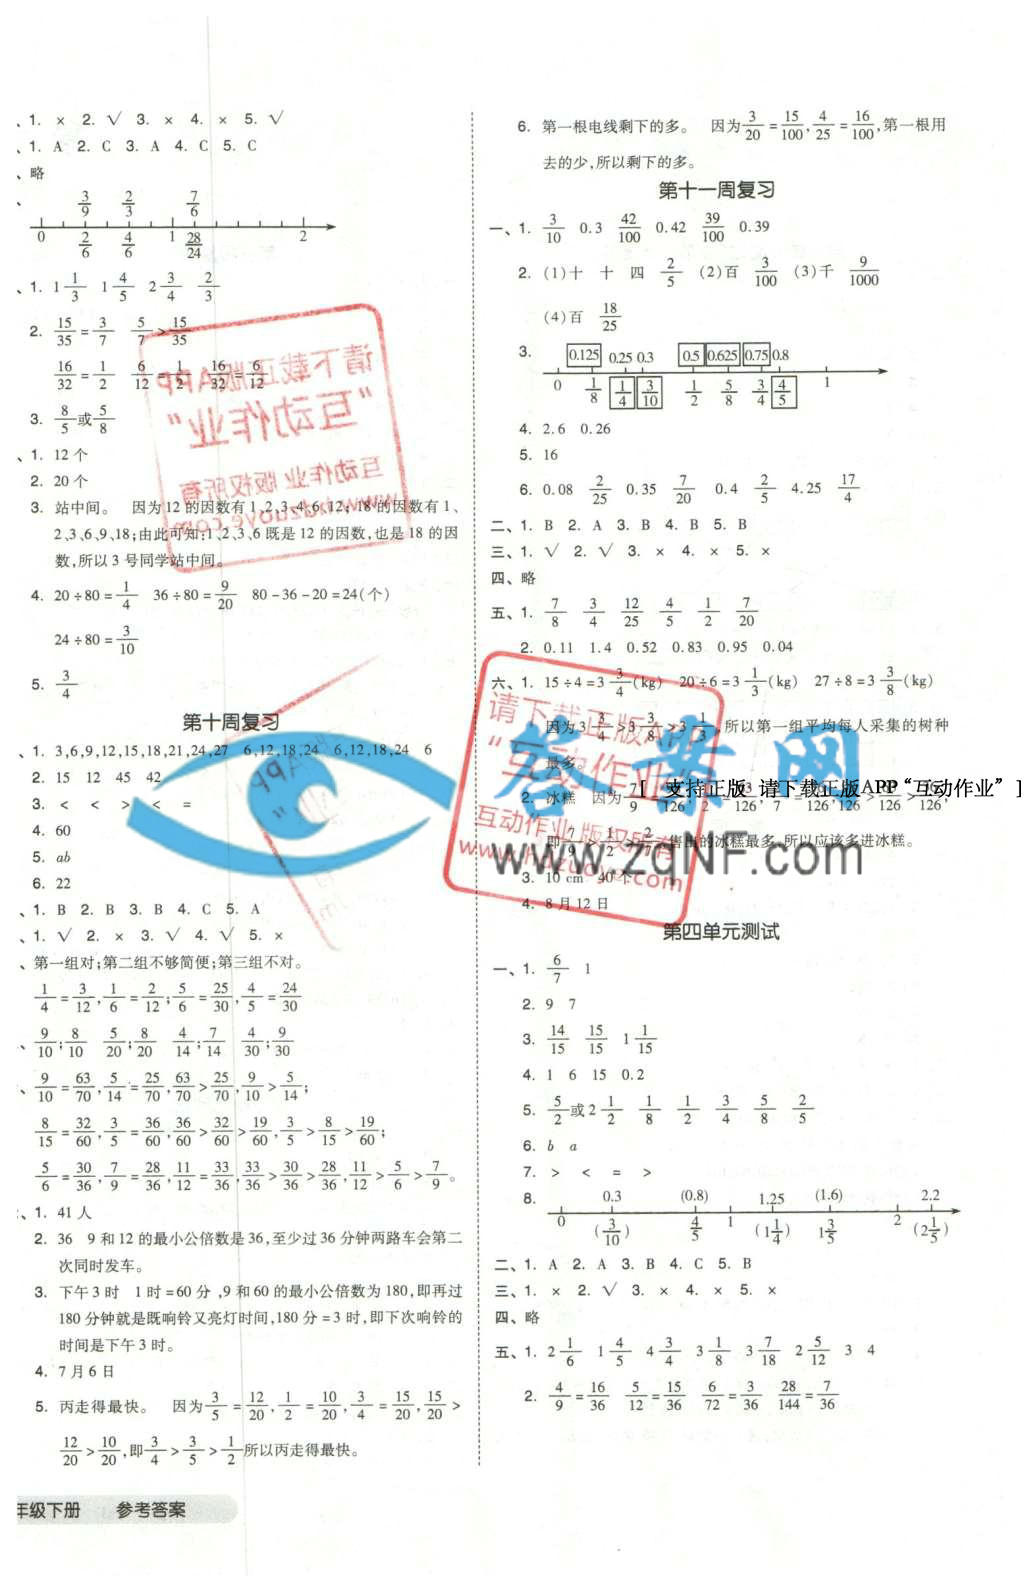 、1. × 2. √ 3. × 4. × 5. √
、1. A 2. C 3. A 4. C 5. C
、略
、 3/9 2/3 7/6
0 2/6 4/6 1 28/24 2
、1. 1 1/3 1 4/5 2 3/4 2/3
2. 15/35 = 3/7 5/7 > 15/35
16/32 = 1/2 6/12 = 1/2 16/32 = 6/12
3. 8/5 或 5/8
、1. 12 个
2. 20 个
3. 站中间。 因为 12 的因数有 1、2、3、4、6、12; 18 的因数有 1、
2、3、6、9、18;由此可知:1、2、3、6 既是 12 的因数,也是 18 的因
数,所以 3 号同学站中间。
4. 20÷80 = 1/4 36÷80 = 9/20 80-36-20=24(个)
24÷80 = 3/10
5. 3/4
第十周复习
、1. 3,6,9,12,15,18,21,24,27 6,12,18,24 6,12,18,24 6
2. 15 12 45 42
3. < < > < =
4. 60
5. ab
6. 22
、1. B 2. B 3. B 4. C 5. A
、1. √ 2. × 3. √ 4. √ 5. ×
、第一组对;第二组不够简便;第三组不对。
1/4 = 3/12, 1/6 = 2/12; 5/6 = 25/30, 4/5 = 24/30
、 9/10; 8/10 5/20; 8/20 4/14; 7/14 4/30; 9/30
、 9/10 = 63/70, 5/14 = 25/70, 63/70 > 25/70, 9/10 > 5/14;
8/15 = 32/60, 3/5 = 36/60, 36/60 > 32/60 > 19/60, 3/5 > 8/15 > 19/60;
5/6 = 30/36, 7/9 = 28/36, 11/12 = 33/36, 33/36 > 30/36 > 28/36, 11/12 > 5/6 > 7/9。
、1. 41 人
2. 36 9 和 12 的最小公倍数是 36,至少过 36 分钟两路车会第二
次同时发车。
3. 下午 3 时 1 时=60 分 ,9 和 60 的最小公倍数为 180,即再过
180 分钟就是既响铃又亮灯时间,180 分=3 时,即下次响铃的
时间是下午 3 时。
4. 7 月 6 日
5. 丙走得最快。 因为 3/5 = 12/20, 1/2 = 10/20, 3/4 = 15/20, 15/20 >
12/20 > 10/20, 即 3/4 > 3/5 > 1/2 所以丙走得最快。
年级下册 参考答案
6. 第一根电线剩下的多。 因为 3/20 = 15/100, 4/25 = 16/100, 第一根用
去的少,所以剩下的多。
第十一周复习
一、1. 3/10 0.3 42/100 0.42 39/100 0.39
2. (1)十 十 四 2/5 (2)百 3/100 (3)千 9/1000
(4)百 18/25
3. 0.125 0.25 0.3 0.5 0.625 0.75 0.8
0 1/8 1/4 3/10 1/2 5/8 3/4 4/5 1
4. 2.6 0.26
5. 16
6. 0.08 2/25 0.35 7/20 0.4 2/5 4.25 17/4
二、1. B 2. A 3. B 4. B 5. B
三、1. √ 2. √ 3. × 4. × 5. ×
四、略
五、1. 7/8 3/4 12/25 4/5 1/2 7/20
2. 0.11 1.4 0.52 0.83 0.95 0.04
六、1. 15÷4=3 3/4 (kg) 20÷6=3 1/3 (kg) 27÷8=3 3/8 (kg)
因为 3 3/4 > 3 3/8 > 3 1/3, 所以第一组平均每人采集的树种
最多。
2. 冰糕 因为 7/9
[ 支持正版 请下载正版APP“互动作业” ]
即 7/9 > 1/2 > 2/7 售出的冰糕最多,所以应该多进冰糕。
3. 10 cm 40 个
4. 8 月 12 日
第四单元测试
一、1. 6/7 1
2. 9 7
3. 14/15 15/15 1 1/15
4. 1 6 15 0.2
5. 5/2 或 2 1/2 1/8 1/2 3/4 5/8 2/5
6. b a
7. > < = >
8. 0.3 (0.8) 1.25 (1.6) 2.2
0 (3/10) 4/5 1 (1 1/4) 1 3/5 2 (2 1/5)
二、1. A 2. A 3. B 4. C 5. B
三、1. × 2. √ 3. × 4. × 5. ×
四、略
五、1. 2 1/6 1 4/5 4 3/4 3 1/8 3 7/18 2 5/12 3 4
2. 4/9 = 16/36 5/12 = 15/36 6/72 = 3/36 28/144 = 7/36
请下载正版APP
“互动作业”
互动作业 版权所有
www.hdzuoye.com
请下载正版APP
“互动作业”
互动作业 版权所有
www.hdzuoye.com
答案网
www.zqNF.com